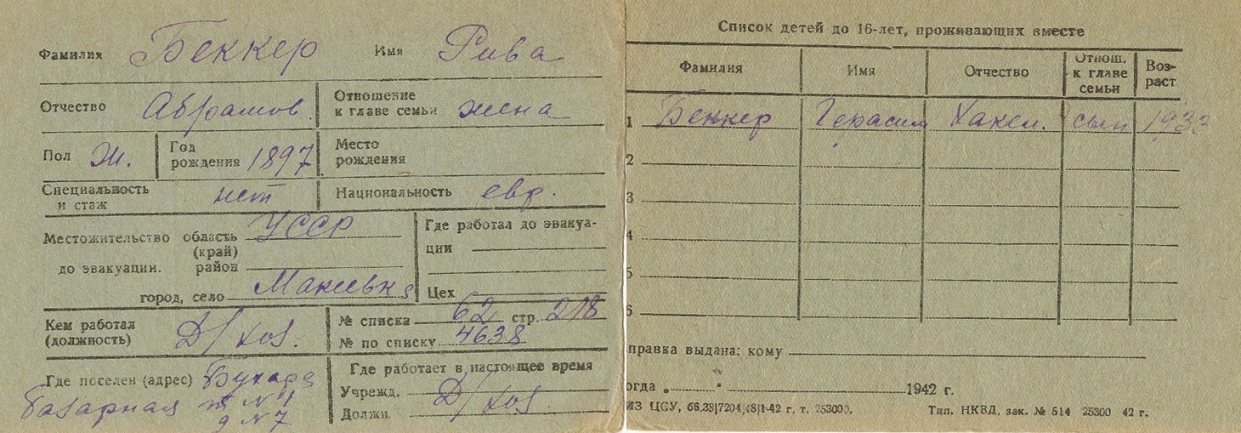 Фамилия Беккер Имя Рива
Отчество Абрамов. Отношение к главе семьи жена
Пол Ж. Год рождения 1897 Место рождения
Специальность и стаж нет Национальность евр.
Местожительство до эвакуации. область (край) УССР
район
город, село
Где работал до эвакуации
Цех
Кем работал (должность) Д/хоз.
№ списка 62 стр. 218
№ по списку 4638
Где поселен (адрес) Бухара
базарная № 1
д № 7
Где работает в настоящее время
Учрежд. Д/хоз
Должн.
Список детей до 16-лет, проживающих вместе
Фамилия Имя Отчество Отнош. к главе семьи Возраст
1 Беккер Герасим сын
2
3
4
5
6
правка выдана: кому
огда 1942 г.
ИЗ ЦСУ, т. 253000. Тип. НКВД, зак. № 514 25300 42 г.